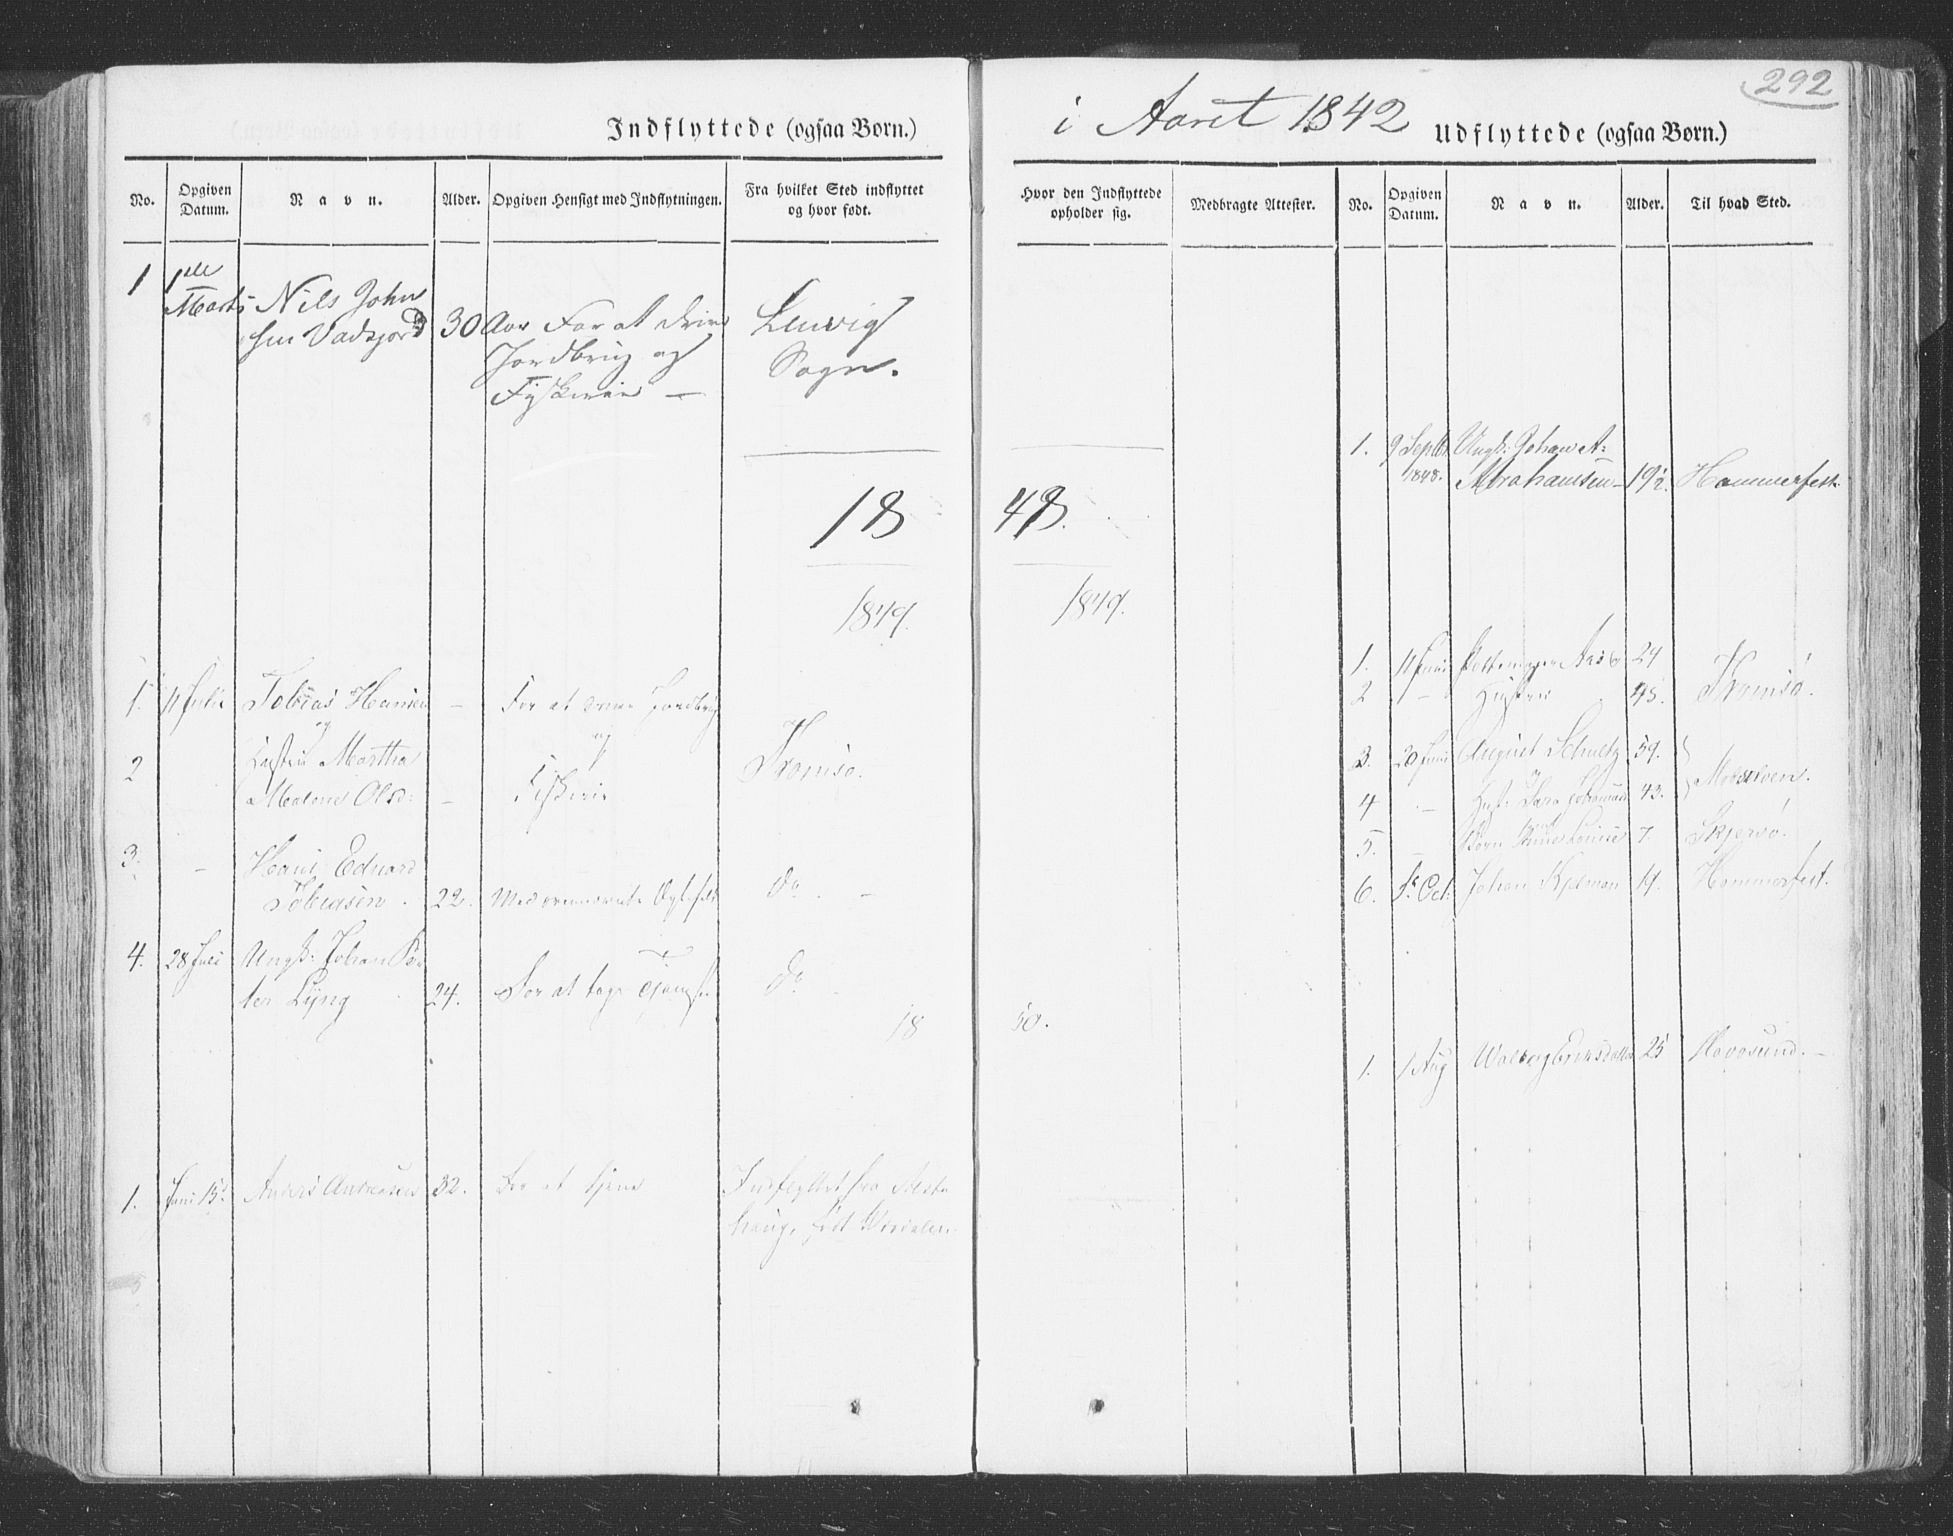 292
Indflyttede (ogsaa Børn.)
i Aaret 1842
Udflyttede (ogsaa Børn.)
No.
Opgiven Datum.
Navn.
Alder.
Opgiven Hensigt med Indflytningen.
Fra hvilket Sted indflyttet og hvor født.
Hvor den Indflyttede opholder sig.
Medbragte Attester.
No.
Opgiven Datum.
Navn.
Alder.
Til hvad Sted.
1 1ste Marts Nils John
sen 30 Aar For at drive
Jordbrug og
Fiskerie —
Lenvig
Sogn.
1. 9 Septbr 1848. Ungk: Johan A:
Abrahamsen 19½ Hammerfest
18 48.
1849. 1849.
1. 11 Juni 24
2 — Hustru 45. Tromsø.
3. 20 Juni August Schultz 59.
og
4 — Hust: 43.
5. — Børn Louise 7. Skjersø.
6. Oct. Johan 19. Hammerfest.
1. 11 Juli Tobias Hansen — For at drive Jordbrug
og
2 Hustru Martha
Malene Olsd: — Fiskerie
Tromsø.
3. — Hans Edvard
Tobiasen. 22. Med Do —
4. 28 Juli Ungk: Johan Pe
ter Lyng 24. For at tage Tjeneste Do —
18 50.
1. 1 Aug Eriksdatter 25 Havøsund. —
1. Juni 15de Anders Andreasen 32. For at tjene Indflyttet fra
haug, født